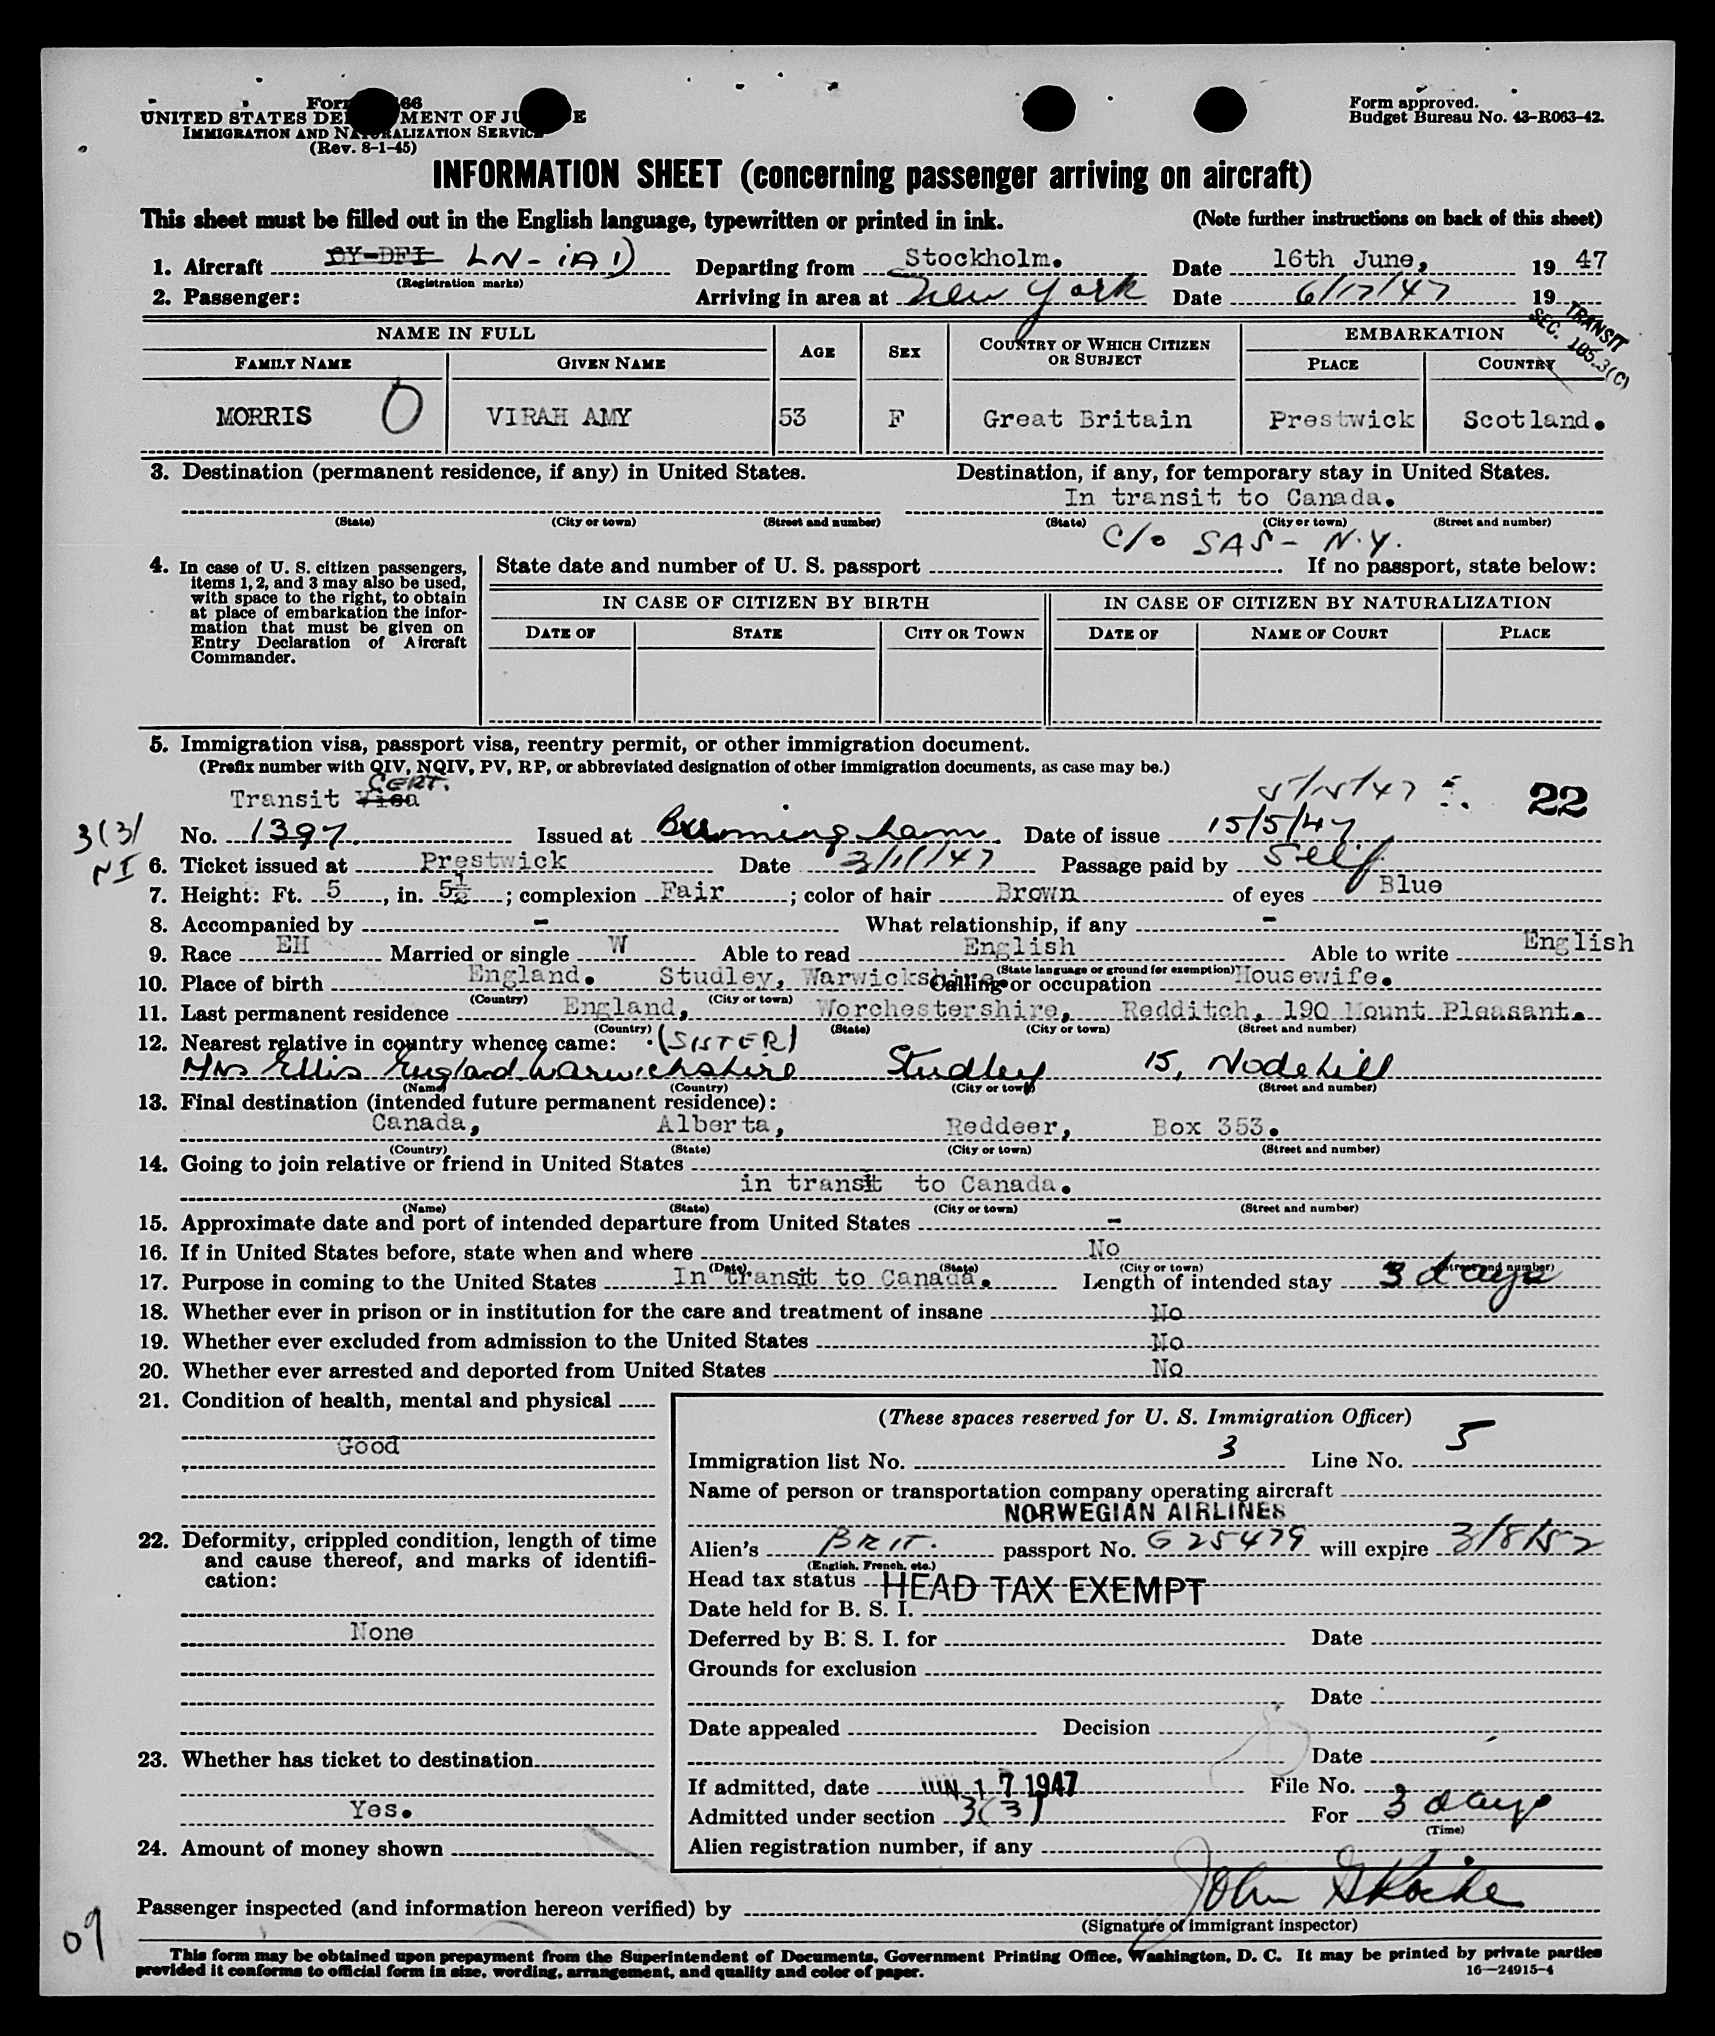 Form 66
UNITED STATES DE MENT OF JU E
IMMIGRATION AND NATURALIZATION SERVICE
(Rev. 8-1-45)
Form approved.
Budget Bureau No. 43-R063-42.
INFORMATION SHEET (concerning passenger arriving on aircraft)
This sheet must be filled out in the English language, typewritten or printed in ink. (Note further instructions on back of this sheet)
1. Aircraft OY-DFI LN-IAI Departing from Stockholm. Date 16th June, 19 47
(Registration marks)
2. Passenger: Arriving in area at New York Date 6/17/47 19
TRANSIT
SEC. 105.3(C)
NAME IN FULL AGE SEX COUNTRY OF WHICH CITIZEN OR SUBJECT EMBARKATION
FAMILY NAME GIVEN NAME PLACE COUNTRY
MORRIS O VIRAH AMY 53 F Great Britain Prestwick Scotland.
3. Destination (permanent residence, if any) in United States. Destination, if any, for temporary stay in United States.
In transit to Canada.
(State) (City or town) (Street and number) (State) (City or town) (Street and number)
C/o SAS - N.Y.
4. In case of U. S. citizen passengers, items 1, 2, and 3 may also be used, with space to the right, to obtain at place of embarkation the information that must be given on Entry Declaration of Aircraft Commander.
State date and number of U. S. passport If no passport, state below:
IN CASE OF CITIZEN BY BIRTH IN CASE OF CITIZEN BY NATURALIZATION
DATE OF STATE CITY OR TOWN DATE OF NAME OF COURT PLACE
5. Immigration visa, passport visa, reentry permit, or other immigration document.
(Prefix number with QIV, NQIV, PV, RP, or abbreviated designation of other immigration documents, as case may be.)
CERT.
Transit Visa 5/15/47 22
3(3)
NI
No. 1397. Issued at Birmingham Date of issue 15/5/47
6. Ticket issued at Prestwick Date Passage paid by Self
7. Height: Ft. 5, in. 5½; complexion Fair; color of hair Brown of eyes Blue
8. Accompanied by - What relationship, if any -
9. Race EH Married or single W Able to read English Able to write English
(State language or ground for exemption)
10. Place of birth England. Studley, Warwickshire. Calling or occupation Housewife.
(Country) (City or town)
11. Last permanent residence England, Worchestershire, Redditch, 190 Mount Pleasant.
(Country) (State) (City or town) (Street and number)
12. Nearest relative in country whence came: (SISTER)
Mrs Ellis England Warwickshire Studley 15, Node hill
(Name) (Country) (City or town) (Street and number)
13. Final destination (intended future permanent residence):
Canada, Alberta, Reddeer, Box 353.
(Country) (State) (City or town) (Street and number)
14. Going to join relative or friend in United States
in transit to Canada.
(Name) (State) (City or town) (Street and number)
15. Approximate date and port of intended departure from United States -
16. If in United States before, state when and where No
(Date) (State) (City or town) (Street and number)
17. Purpose in coming to the United States In transit to Canada. Length of intended stay 3 days
18. Whether ever in prison or in institution for the care and treatment of insane No
19. Whether ever excluded from admission to the United States No
20. Whether ever arrested and deported from United States No
21. Condition of health, mental and physical
Good
22. Deformity, crippled condition, length of time and cause thereof, and marks of identification:
None
23. Whether has ticket to destination
Yes.
24. Amount of money shown
(These spaces reserved for U. S. Immigration Officer)
Immigration list No. 3 Line No. 5
Name of person or transportation company operating aircraft
NORWEGIAN AIRLINES
Alien's BRIT. passport No. G 25479 will expire 3/8/52
(English, French, etc.)
Head tax status HEAD TAX EXEMPT
Date held for B. S. I.
Deferred by B. S. I. for Date
Grounds for exclusion
Date
Date appealed Decision
Date
If admitted, date JUN 17 1947 File No.
Admitted under section 3(3) For 3 days
(Time)
Alien registration number, if any
Passenger inspected (and information hereon verified) by John
(Signature of immigrant inspector)
09
This form may be obtained upon prepayment from the Superintendent of Documents, Government Printing Office, Washington, D. C. It may be printed by private parties
provided it conforms to official form in size, wording, arrangement, and quality and color of paper.
16—24915-4